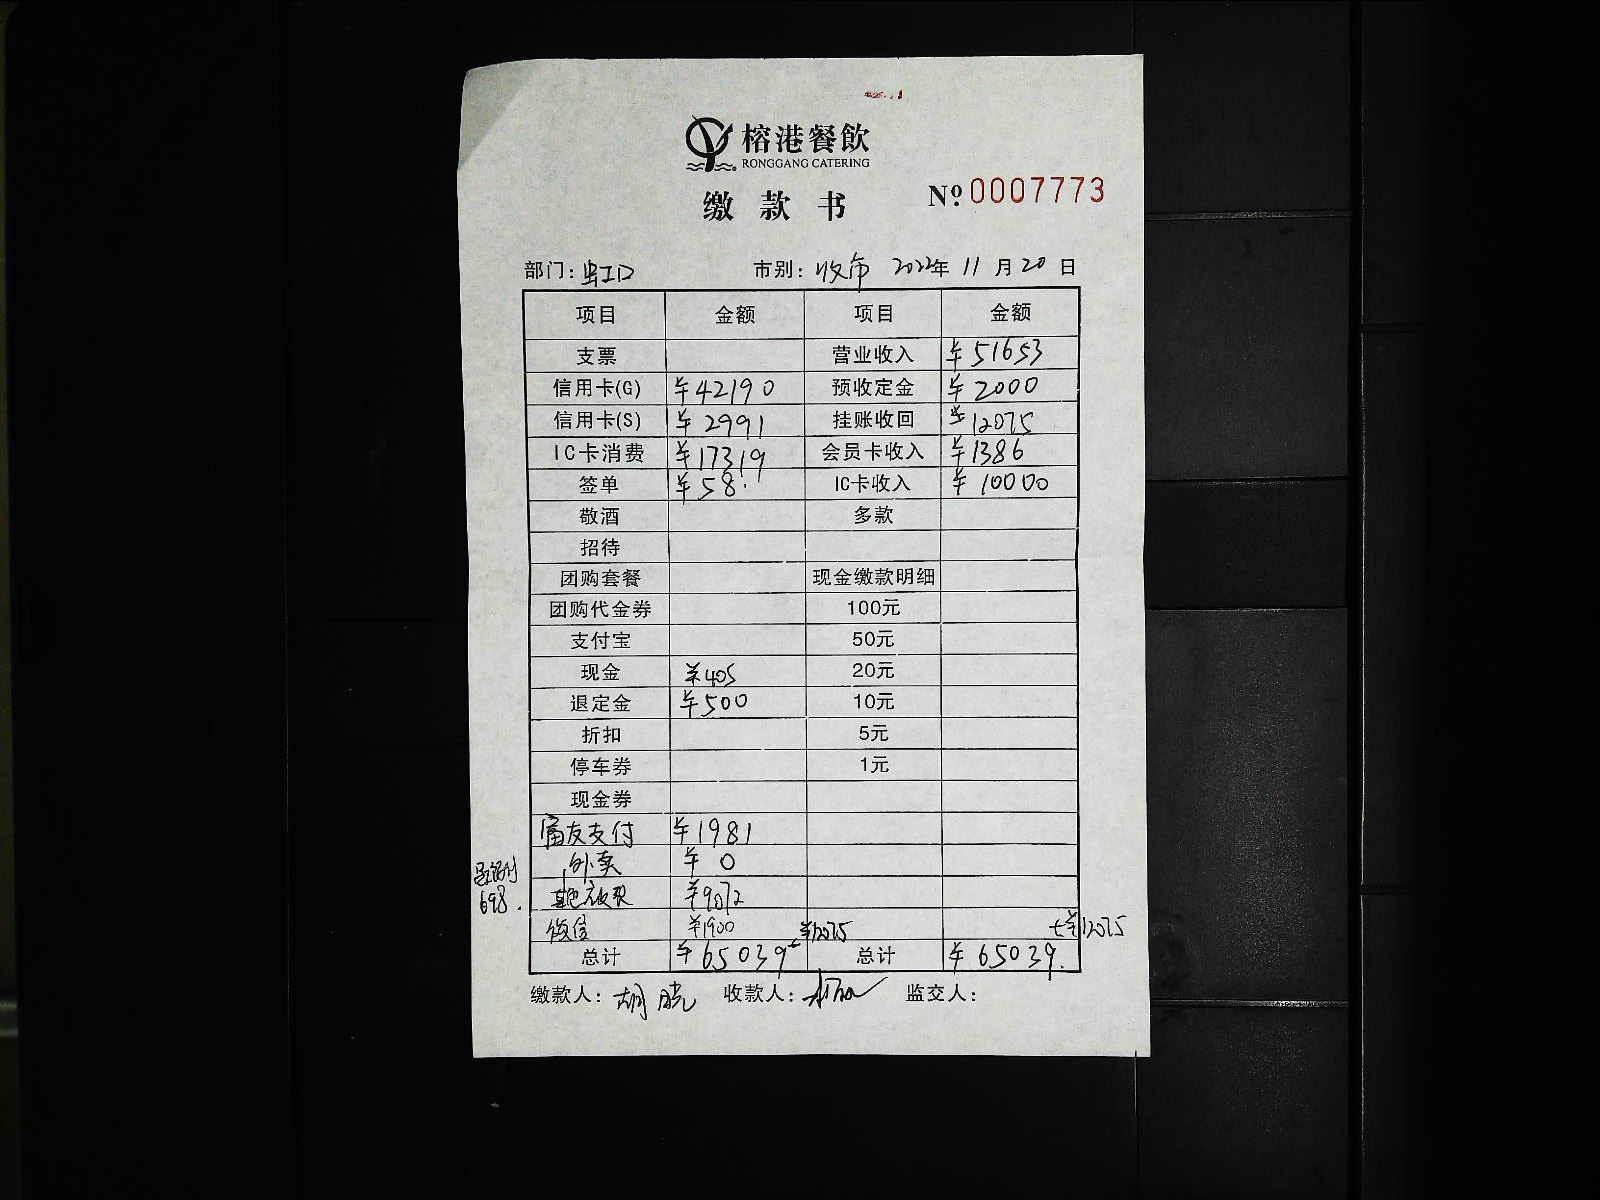 榕港餐飲
RONGGANG CATERING
缴款书
№ 0007773
部门：虹口 市别：收市 2022年 11月20日
项目 金额 项目 金额
支票 营业收入 ¥51653
信用卡(G) ¥42190 预收定金 ¥2000
信用卡(S) ¥2991 挂账收回 ¥12075
IC卡消费 ¥17319 会员卡收入 ¥1386
签单 ¥581 IC卡收入 ¥10000
敬酒 多款
招待
团购套餐 现金缴款明细
团购代金券 100元
支付宝 50元
现金 ¥405 20元
退定金 ¥500 10元
折扣 5元
停车券 1元
现金券
富友支付 ¥1981
外卖 ¥0
698.
¥9072
微信 ¥1900 ¥12075 +¥12075
总计 ¥65039+ 总计 ¥65039.
缴款人：胡晓 收款人： 监交人：